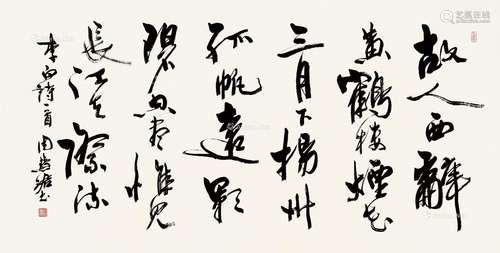 故人西辭
黄鶴樓煙花
三月下揚州
孤帆遠影
碧空盡惟見
長江天際流
李白詩一首 周